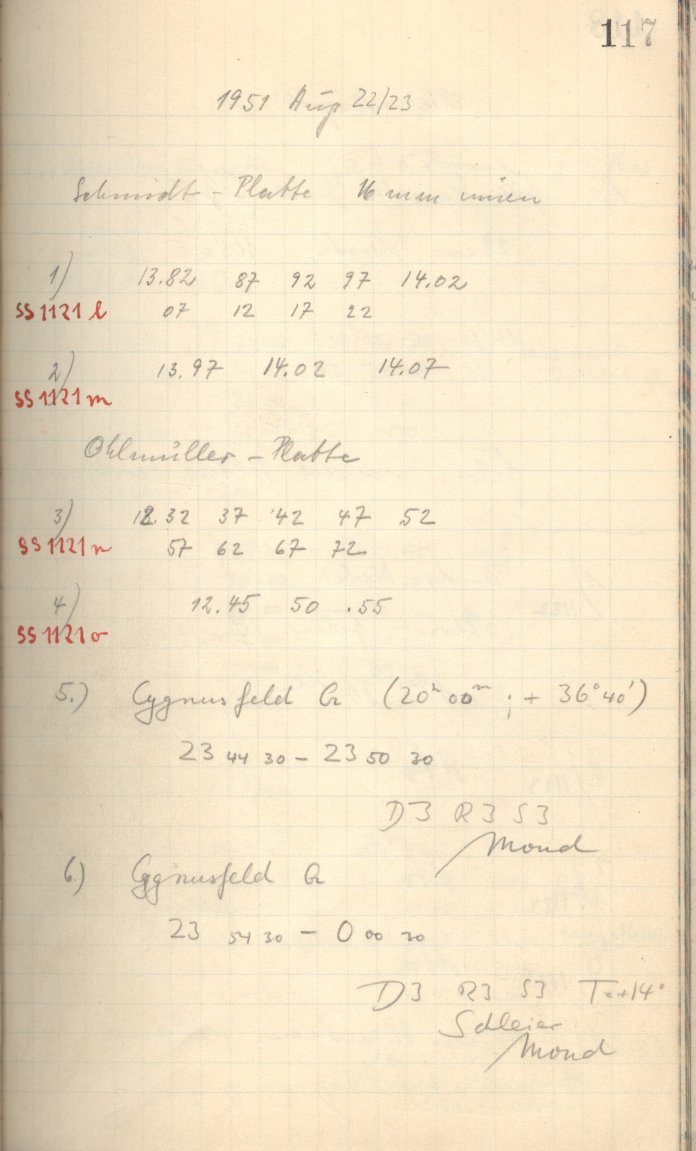 117
1951 Aug 22/23
Schmidt-Platte 16 mm
1) 13.82 87 92 97 14.02
SS 1121 l 07 12 17 22
2) 13.97 14.02 14.07
SS 1121 m
Ohlmüller-Platte
3) 12.32 37 42 47 52
SS 1121 n 57 62 67 72
4) 12.45 50 .55
SS 1121 o
5.) Cygnusfeld (20ʰ 00ᵐ ; + 36° 40')
23 44 30 – 23 50 30
D3 R3 S3
Mond
6.) Cygnusfeld
23 54 30 – 0 00 30
D3 R3 S3 T=+14°
Schleier
Mond